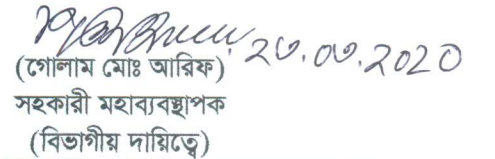 ২৩.০৩.2020
(গোলাম মোঃ আরিফ)
সহকারী মহাব্যবস্থাপক
(বিভাগীয় দায়িত্বে)